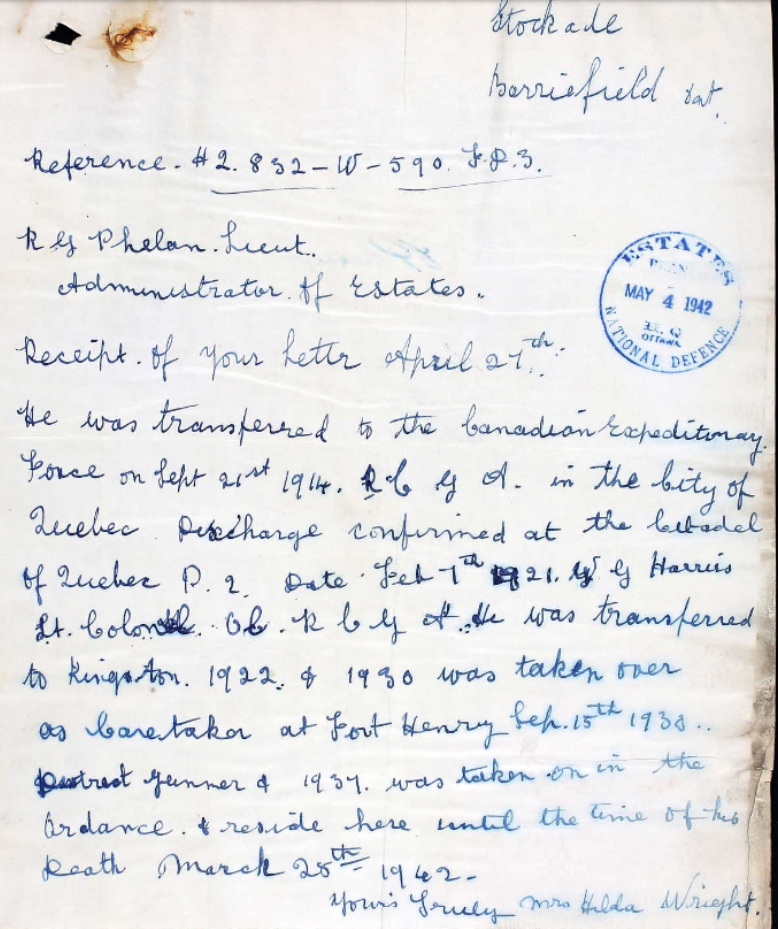 Stockade
Barriefield Ont.
Reference. #2. 832-W-590. F.D.3.
R G Phelan. Lieut..
Administrator. of Estates.
ESTATES
MAY 4 1942
OTTAWA
NATIONAL DEFENCE
Receipt. of your Letter April 27th.
He was transferred to the Canadian Expeditionary.
Force on Sept 21st 1914. R C G A. in the City of
Quebec Discharge confirmed at the Citadel
of Quebec P. Q. Date Feb 7th 1921. W G Harris
Lt. Colonel. O C. R C G A. He was transferred
to Kingston. 1922. & 1930 was taken over
as Caretaker at Fort Henry Sep. 15th 1938..
District Gunner & 1937. was taken on in the
Ordance. & reside here until the time of his
Death March 28th 1942-
Yours Truly Mrs Hilda Wright.